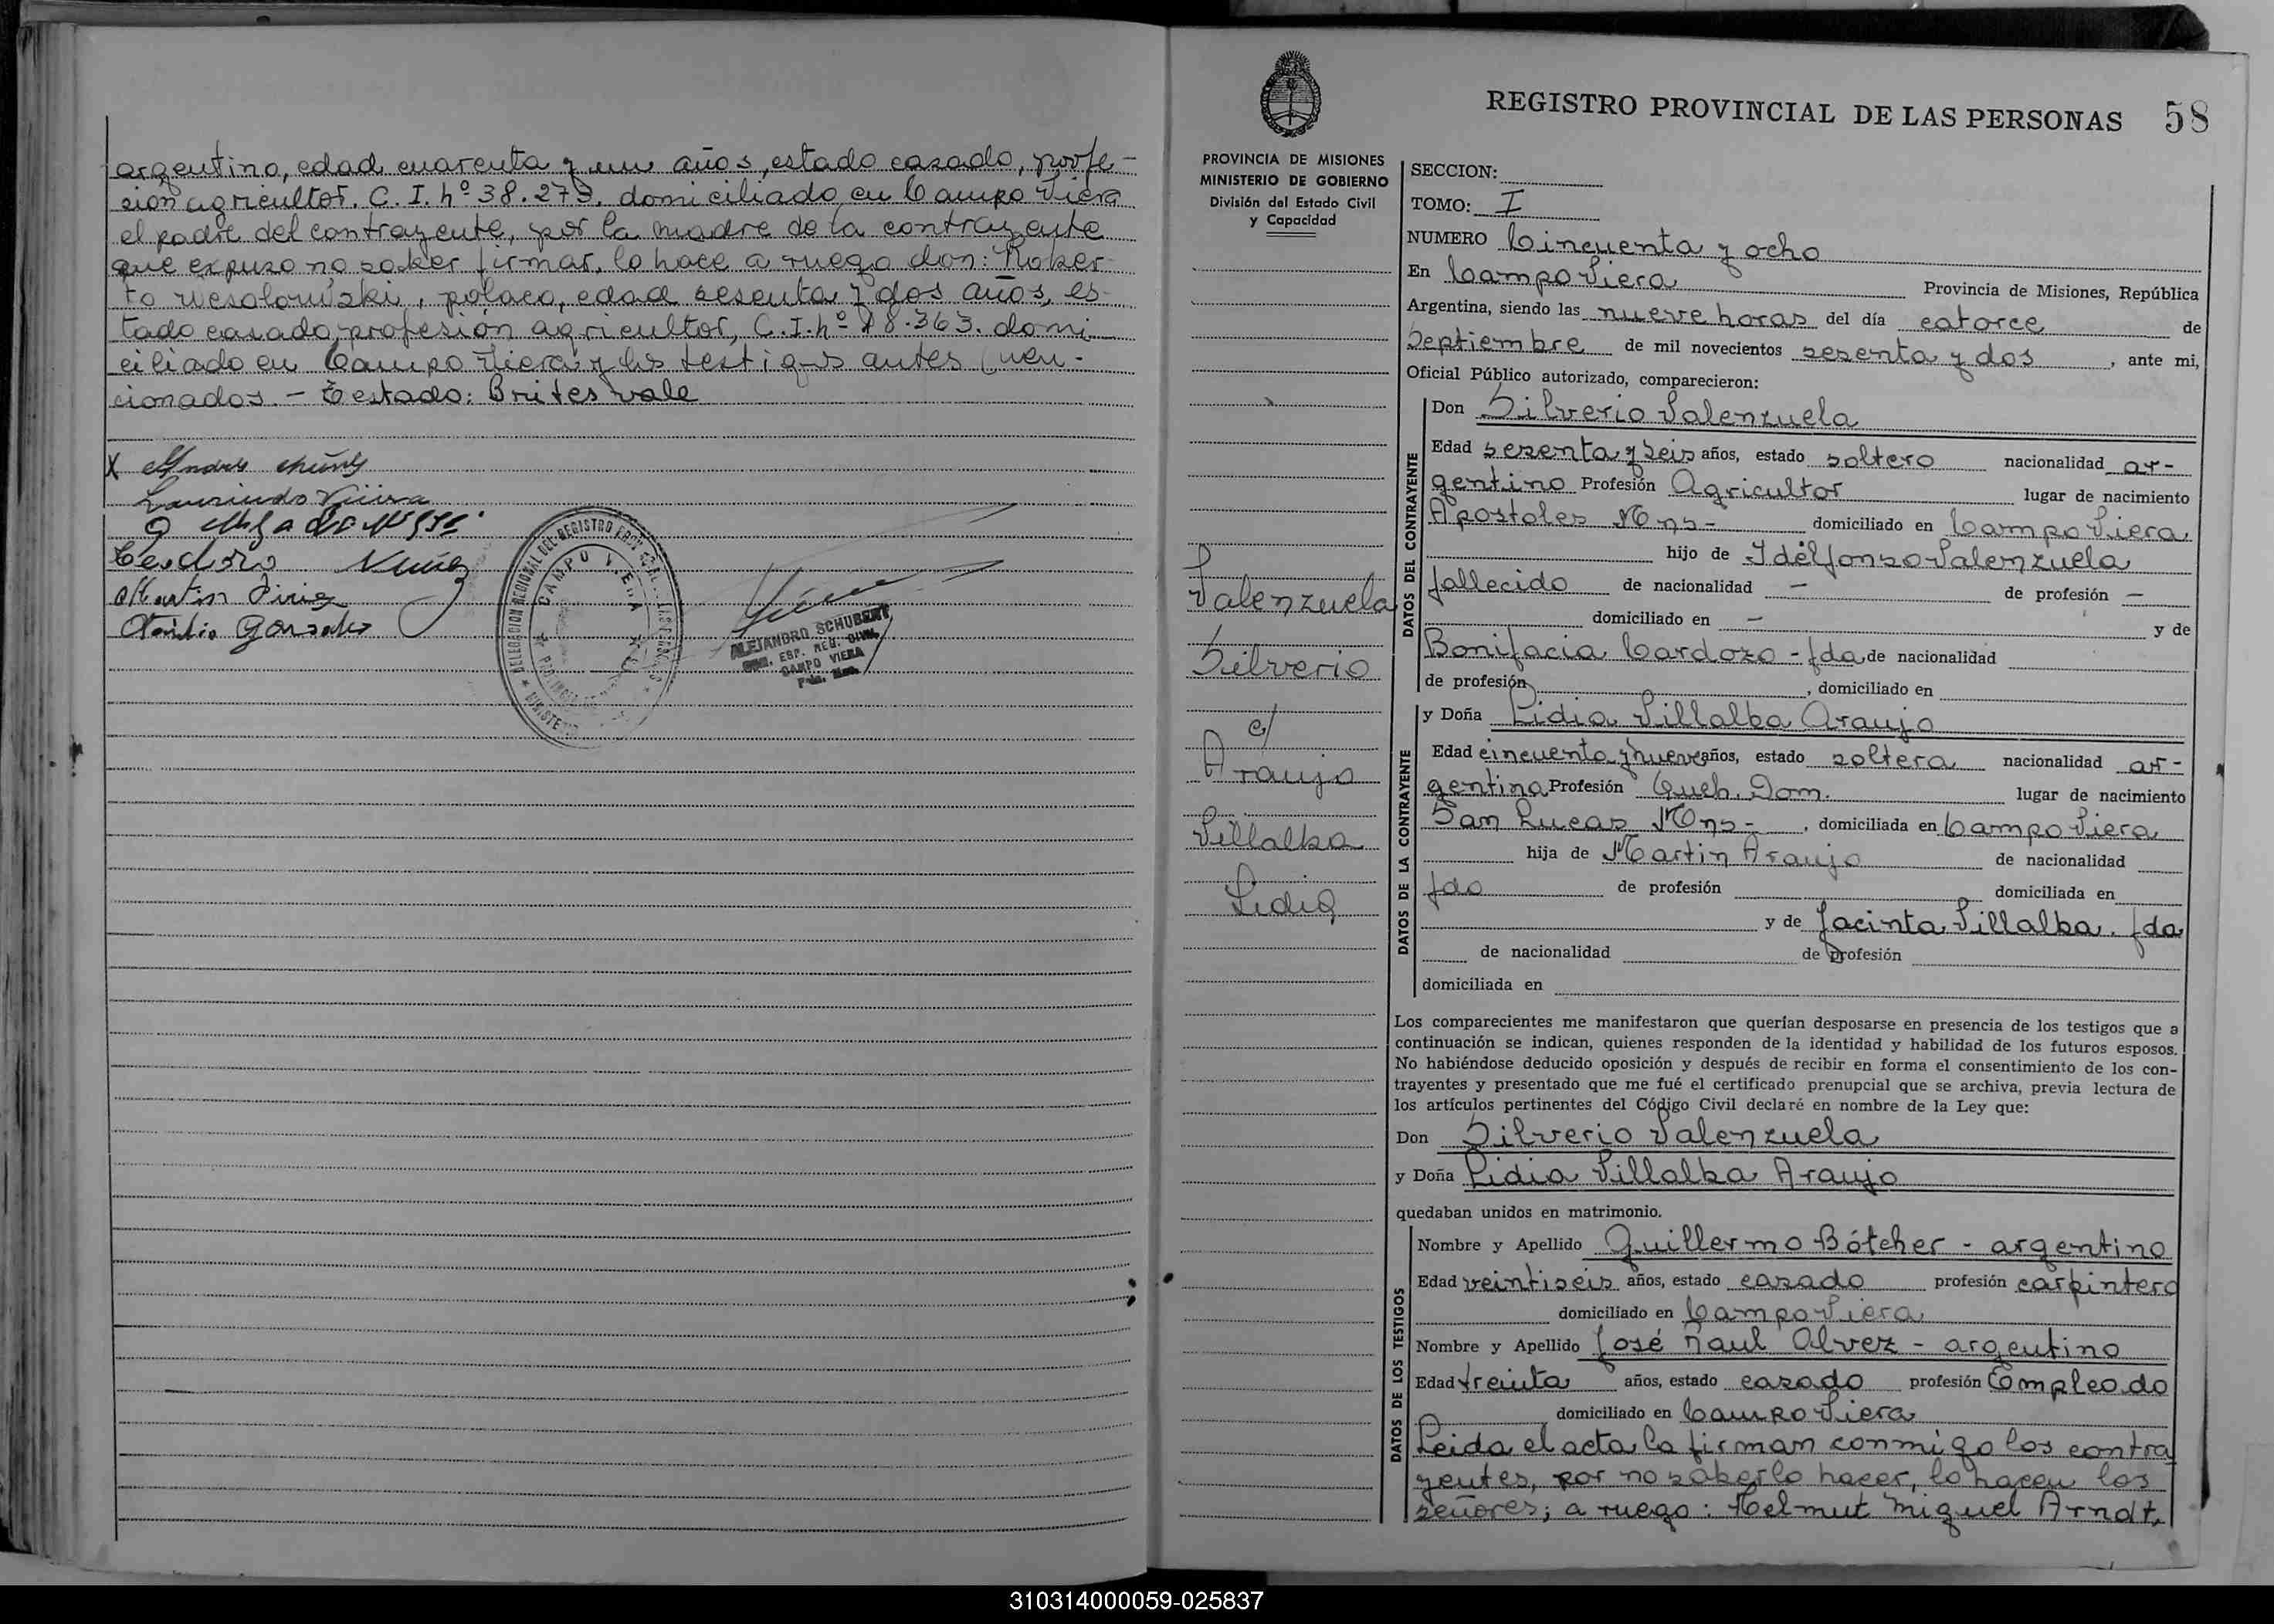 argentino, edad cuarenta y un años, estado casado, profe-
sion agricultor. C. I. nº 38.273. domiciliado en Campo Viera
el padre del contrayente, por la madre de la contrayente
que expuso no saber firmar, lo hace a ruego don: Rober-
to Wesolowski, polaco, edad sesenta y dos años, es-
tado casado, profesión agricultor, C.I. nº 18.363. domi-
ciliado en Campo Viera y los testigos antes men-
cionados. - Testado: Brites vale
X
Teodoro Nuñez
Martin
DELEGACION REGIONAL DEL REGISTRO
CAMPO VIERA
MINISTERIO
ALEJANDRO SCHUBERT
ESP. REG. CIVIL
CAMPO VIERA
REGISTRO PROVINCIAL DE LAS PERSONAS 58
PROVINCIA DE MISIONES
MINISTERIO DE GOBIERNO
División del Estado Civil
y Capacidad
Valenzuela
Silverio
c/
Araujo
Villalba
Lidia
SECCION:
TOMO: I
NUMERO Cincuenta y ocho
En Campo Viera Provincia de Misiones, República
Argentina, siendo las nueve horas del día catorce de
Septiembre de mil novecientos sesenta y dos, ante mi,
Oficial Público autorizado, comparecieron:
DATOS DEL CONTRAYENTE
Don Silverio Valenzuela
Edad sesenta y seis años, estado soltero nacionalidad ar-
gentino Profesión Agricultor lugar de nacimiento
Apostoles Mns- domiciliado en Campo Viera
hijo de Idelfonso Valenzuela
fallecido de nacionalidad — de profesión —
domiciliado en — y de
Bonifacia Cardozo - fda de nacionalidad
de profesión , domiciliado en
DATOS DE LA CONTRAYENTE
y Doña Lidia Villalba Araujo
Edad cincuenta y nueve años, estado soltera nacionalidad ar-
gentina Profesión Queh. Dom. lugar de nacimiento
San Lucas Mns- , domiciliada en Campo Viera
hija de Martin Araujo de nacionalidad
fdo de profesión domiciliada en
y de Jacinta Villalba. fda
de nacionalidad de profesión
domiciliada en
Los comparecientes me manifestaron que querían desposarse en presencia de los testigos que a
continuación se indican, quienes responden de la identidad y habilidad de los futuros esposos.
No habiéndose deducido oposición y después de recibir en forma el consentimiento de los con-
trayentes y presentado que me fué el certificado prenupcial que se archiva, previa lectura de
los artículos pertinentes del Código Civil declaré en nombre de la Ley que:
Don Silverio Valenzuela
y Doña Lidia Villalba Araujo
quedaban unidos en matrimonio.
DATOS DE LOS TESTIGOS
Nombre y Apellido Guillermo Bótcher - argentino
Edad veintiseis años, estado casado profesión carpintero
domiciliado en Campo Viera
Nombre y Apellido José Raul Alvez - argentino
Edad treinta años, estado casado profesión Empleado
domiciliado en Campo Viera
Leida el acta la firman conmigo los contra
yentes, por no saberlo hacer, lo hacen los
señores; a ruego: Helmut Miguel Arndt,
310314000059-025837